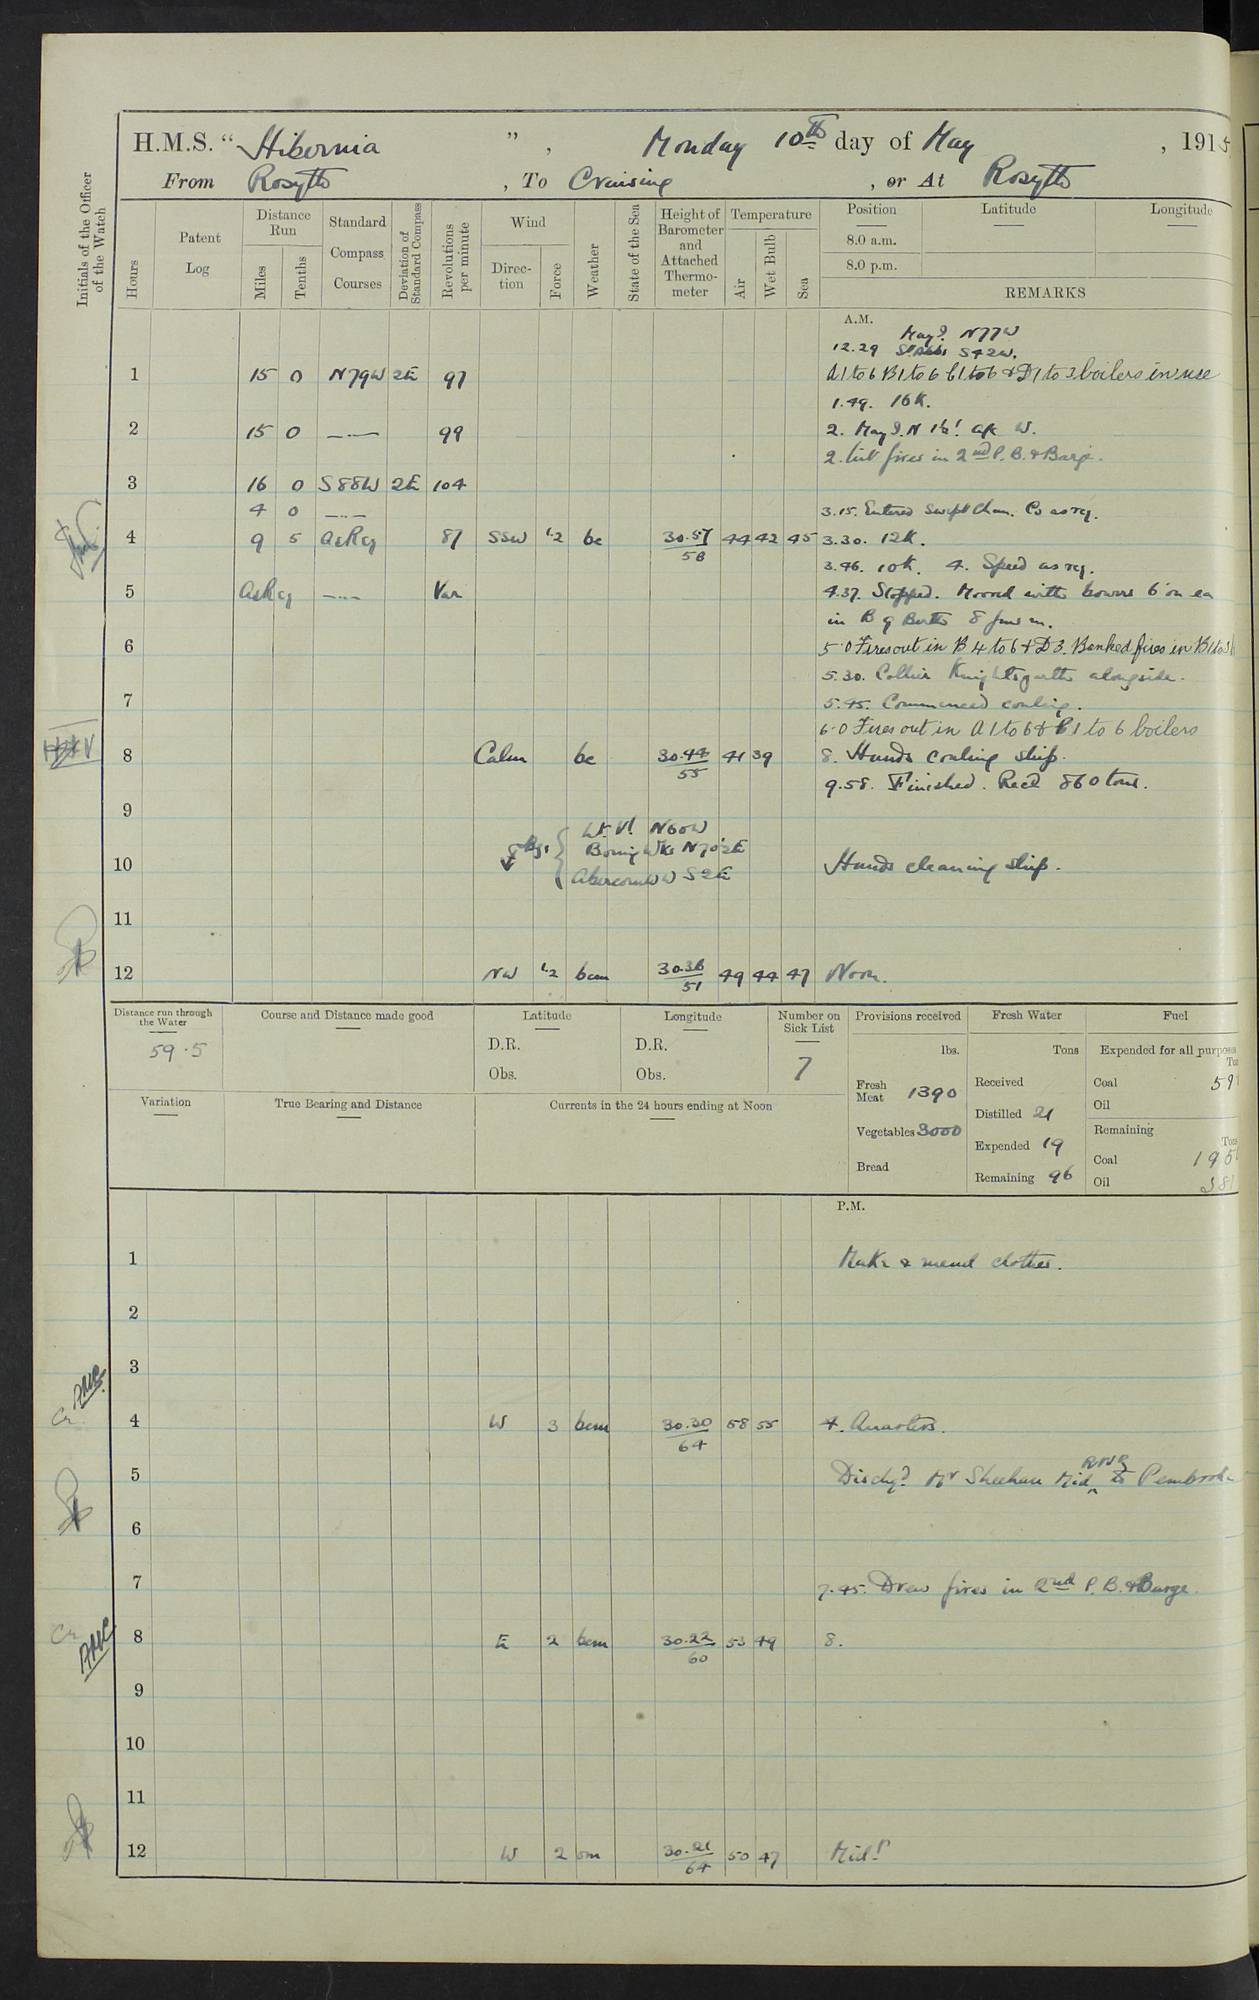 H.M.S. “ Hibernia ” , Monday 10th day of May , 1915
From Rosyth , To Cruising , or At Rosyth
Initials of the Officer of the Watch
Hours
Patent Log
Distance Run
Miles
Tenths
Standard Compass Courses
Deviation of Standard Compass
Revolutions per minute
Wind
Direc- tion
Force
Weather
State of the Sea
Height of Barometer and Attached Thermo- meter
Temperature
Air
Wet Bulb
Sea
Position
Latitude
Longitude
8.0 a.m.
8.0 p.m.
REMARKS
A.M.
May I. N77W
12.29 S42W.
1 15 0 N79W 2E 97 A1 to 6 B1 to 6 C1 to 6 & D1 to 3 boilers in use
1.49. 16K.
2 15 0 —..— 99 2. May I. N 1½' a/c W.
2. Lit fires in 2nd P.B. & Barge.
3 16 0 S88W 2E 104
4 0 —..— 3.15. Entered Swept Chan. Co as rq.
4 9 5 AsReq 87 SSW 1.2 bc 30.57 44 42 45 3.30. 12K.
58
3.46. 10K. 4. Speed as rq.
5 AsReq —..— Var 4.37. Stopped. Moored with bowers 6 on ea
in B 9 Berth 8 fms m.
6 5.0 Fires out in B 4 to 6 & D3. Banked fires in B1 to 3
5.30. Collier Knightsgarth alongside.
7 5.45. Commenced coaling.
6.0 Fires out in A 1 to 6 & C1 to 6 boilers
8 Calm bc 30.44 41 39 8. Hands coaling ship.
55
9.58. Finished. Recd 860 tons.
9
Lt. Vl N60W
10 Bgs N70½E Hands cleaning ship.
S2E
11
12 NW 1.2 bcm 30.36 49 44 47 Noon.
51
Distance run through the Water
59.5
Course and Distance made good
Latitude
D.R.
Obs.
Longitude
D.R.
Obs.
Number on Sick List
7
Provisions received
lbs.
Fresh Meat 1390
Vegetables 3000
Bread
Fresh Water
Tons
Received
Distilled 21
Expended 19
Remaining 96
Fuel
Expended for all purposes
Coal
Oil
Remaining
Tons
Coal
Oil
Variation
True Bearing and Distance
Currents in the 24 hours ending at Noon
P.M.
1 Make & mend clothes.
2
3
4 W 3 bcm 30.30 58 55 4. Quarters.
64
RNR
5 Dischgd Mr Sheehan Mid ^ to Pembroke
6
7 7.45. Drew fires in 2nd P.B. & Barge.
8 E 2 bcm 30.22 53 49 8.
60
9
10
11
12 W 2 om 30.21 50 47 Midt
64